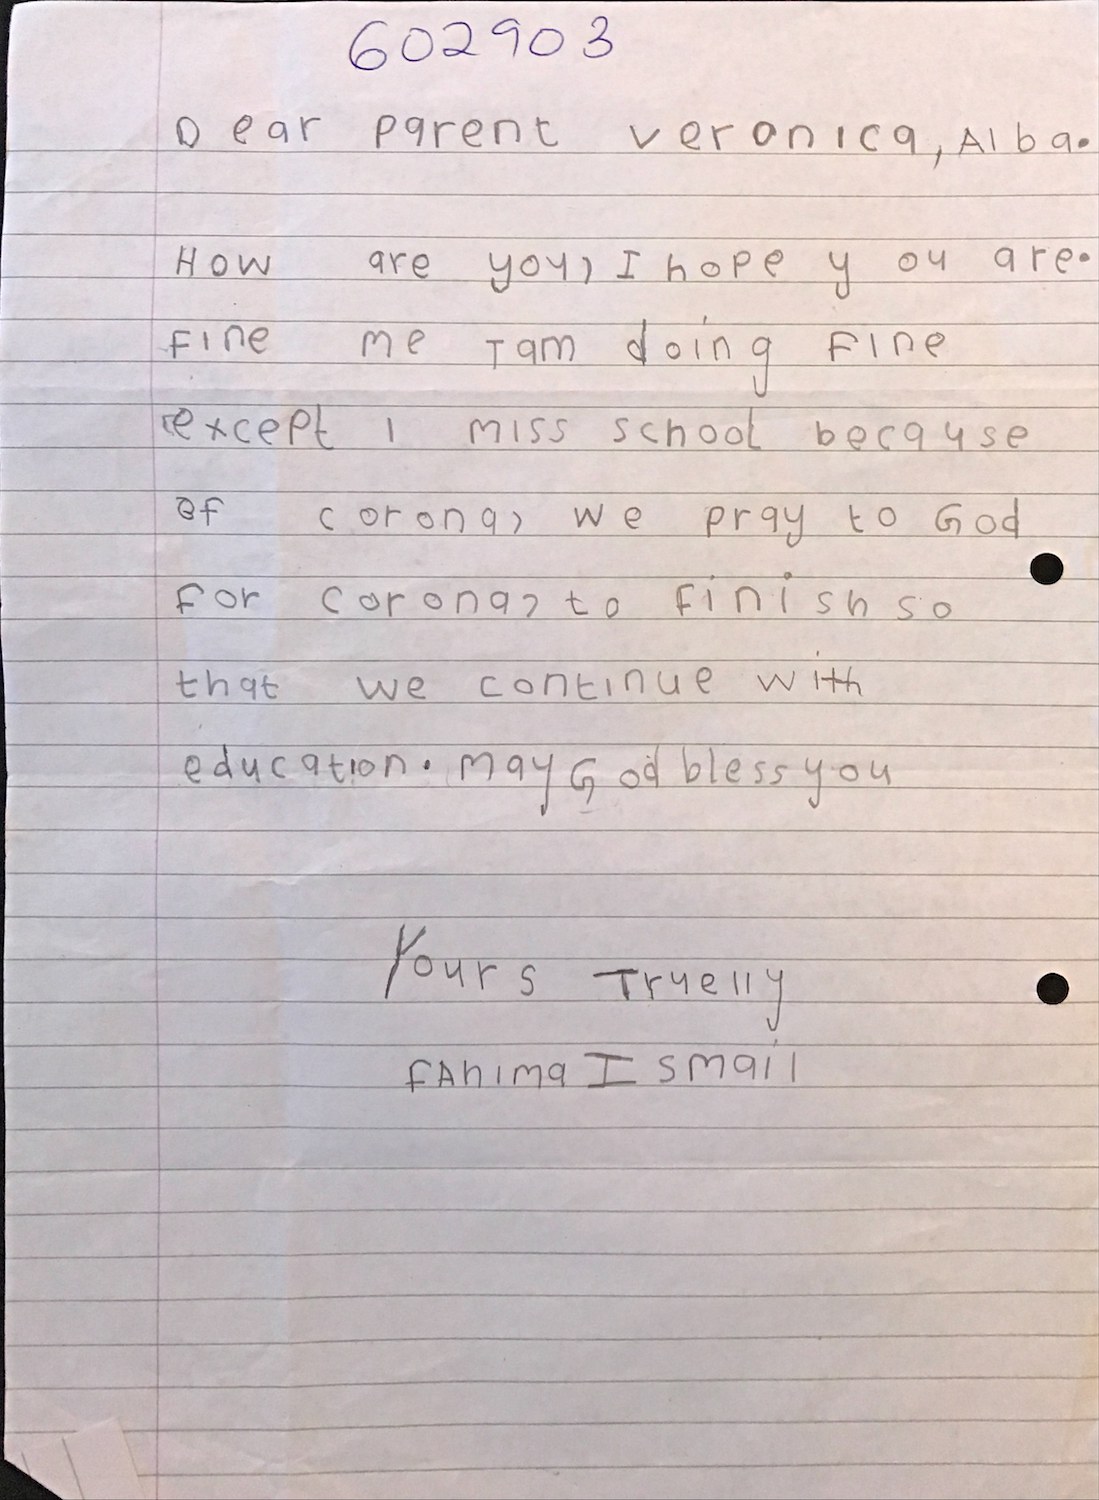 602903
Dear parent veronica, Alba.
How are you, I hope you are.
fine me I am doing fine
except I miss school because
of corona, we pray to God
for corona, to finish so
that we continue with
education. May God bless you
Yours Truelly
fAhima Ismail